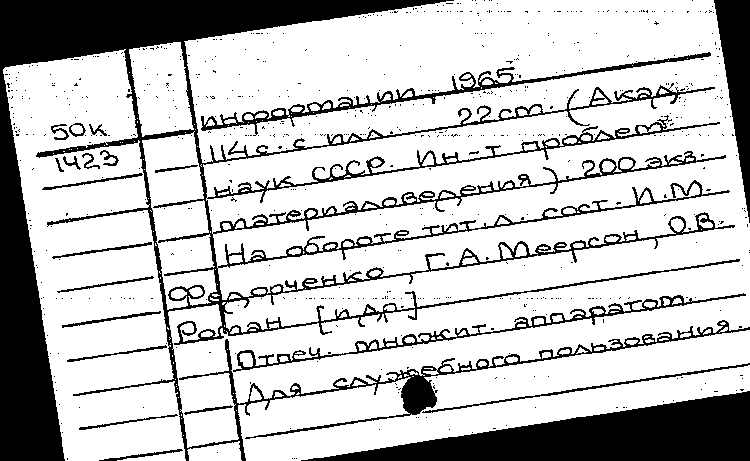 информации, 1965.
50к
114с. с илл. 22cm. (Акад.
1423
наук СССР. Ин-т проблем
материаловедения). 200 экз.
На обороте тит. л. сост. И.М.
Федорченко, Г.А. Меерсон, О.В.
Роман [и др.]
Отпеч. множит. аппаратом.
Для служебного пользования.